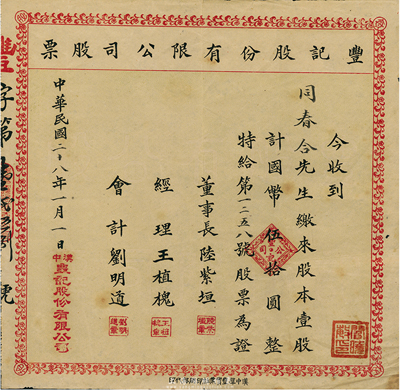 豐記股份有限公司股票
今收到
同春合先生繳來股本壹股
計國幣伍拾圓整
特給第一二五八號股票為證
董事長陸紫垣
經理王植槐
會計劉明道
中華民國二十八年一月一日
漢中豐記股份有限公司
字第
號